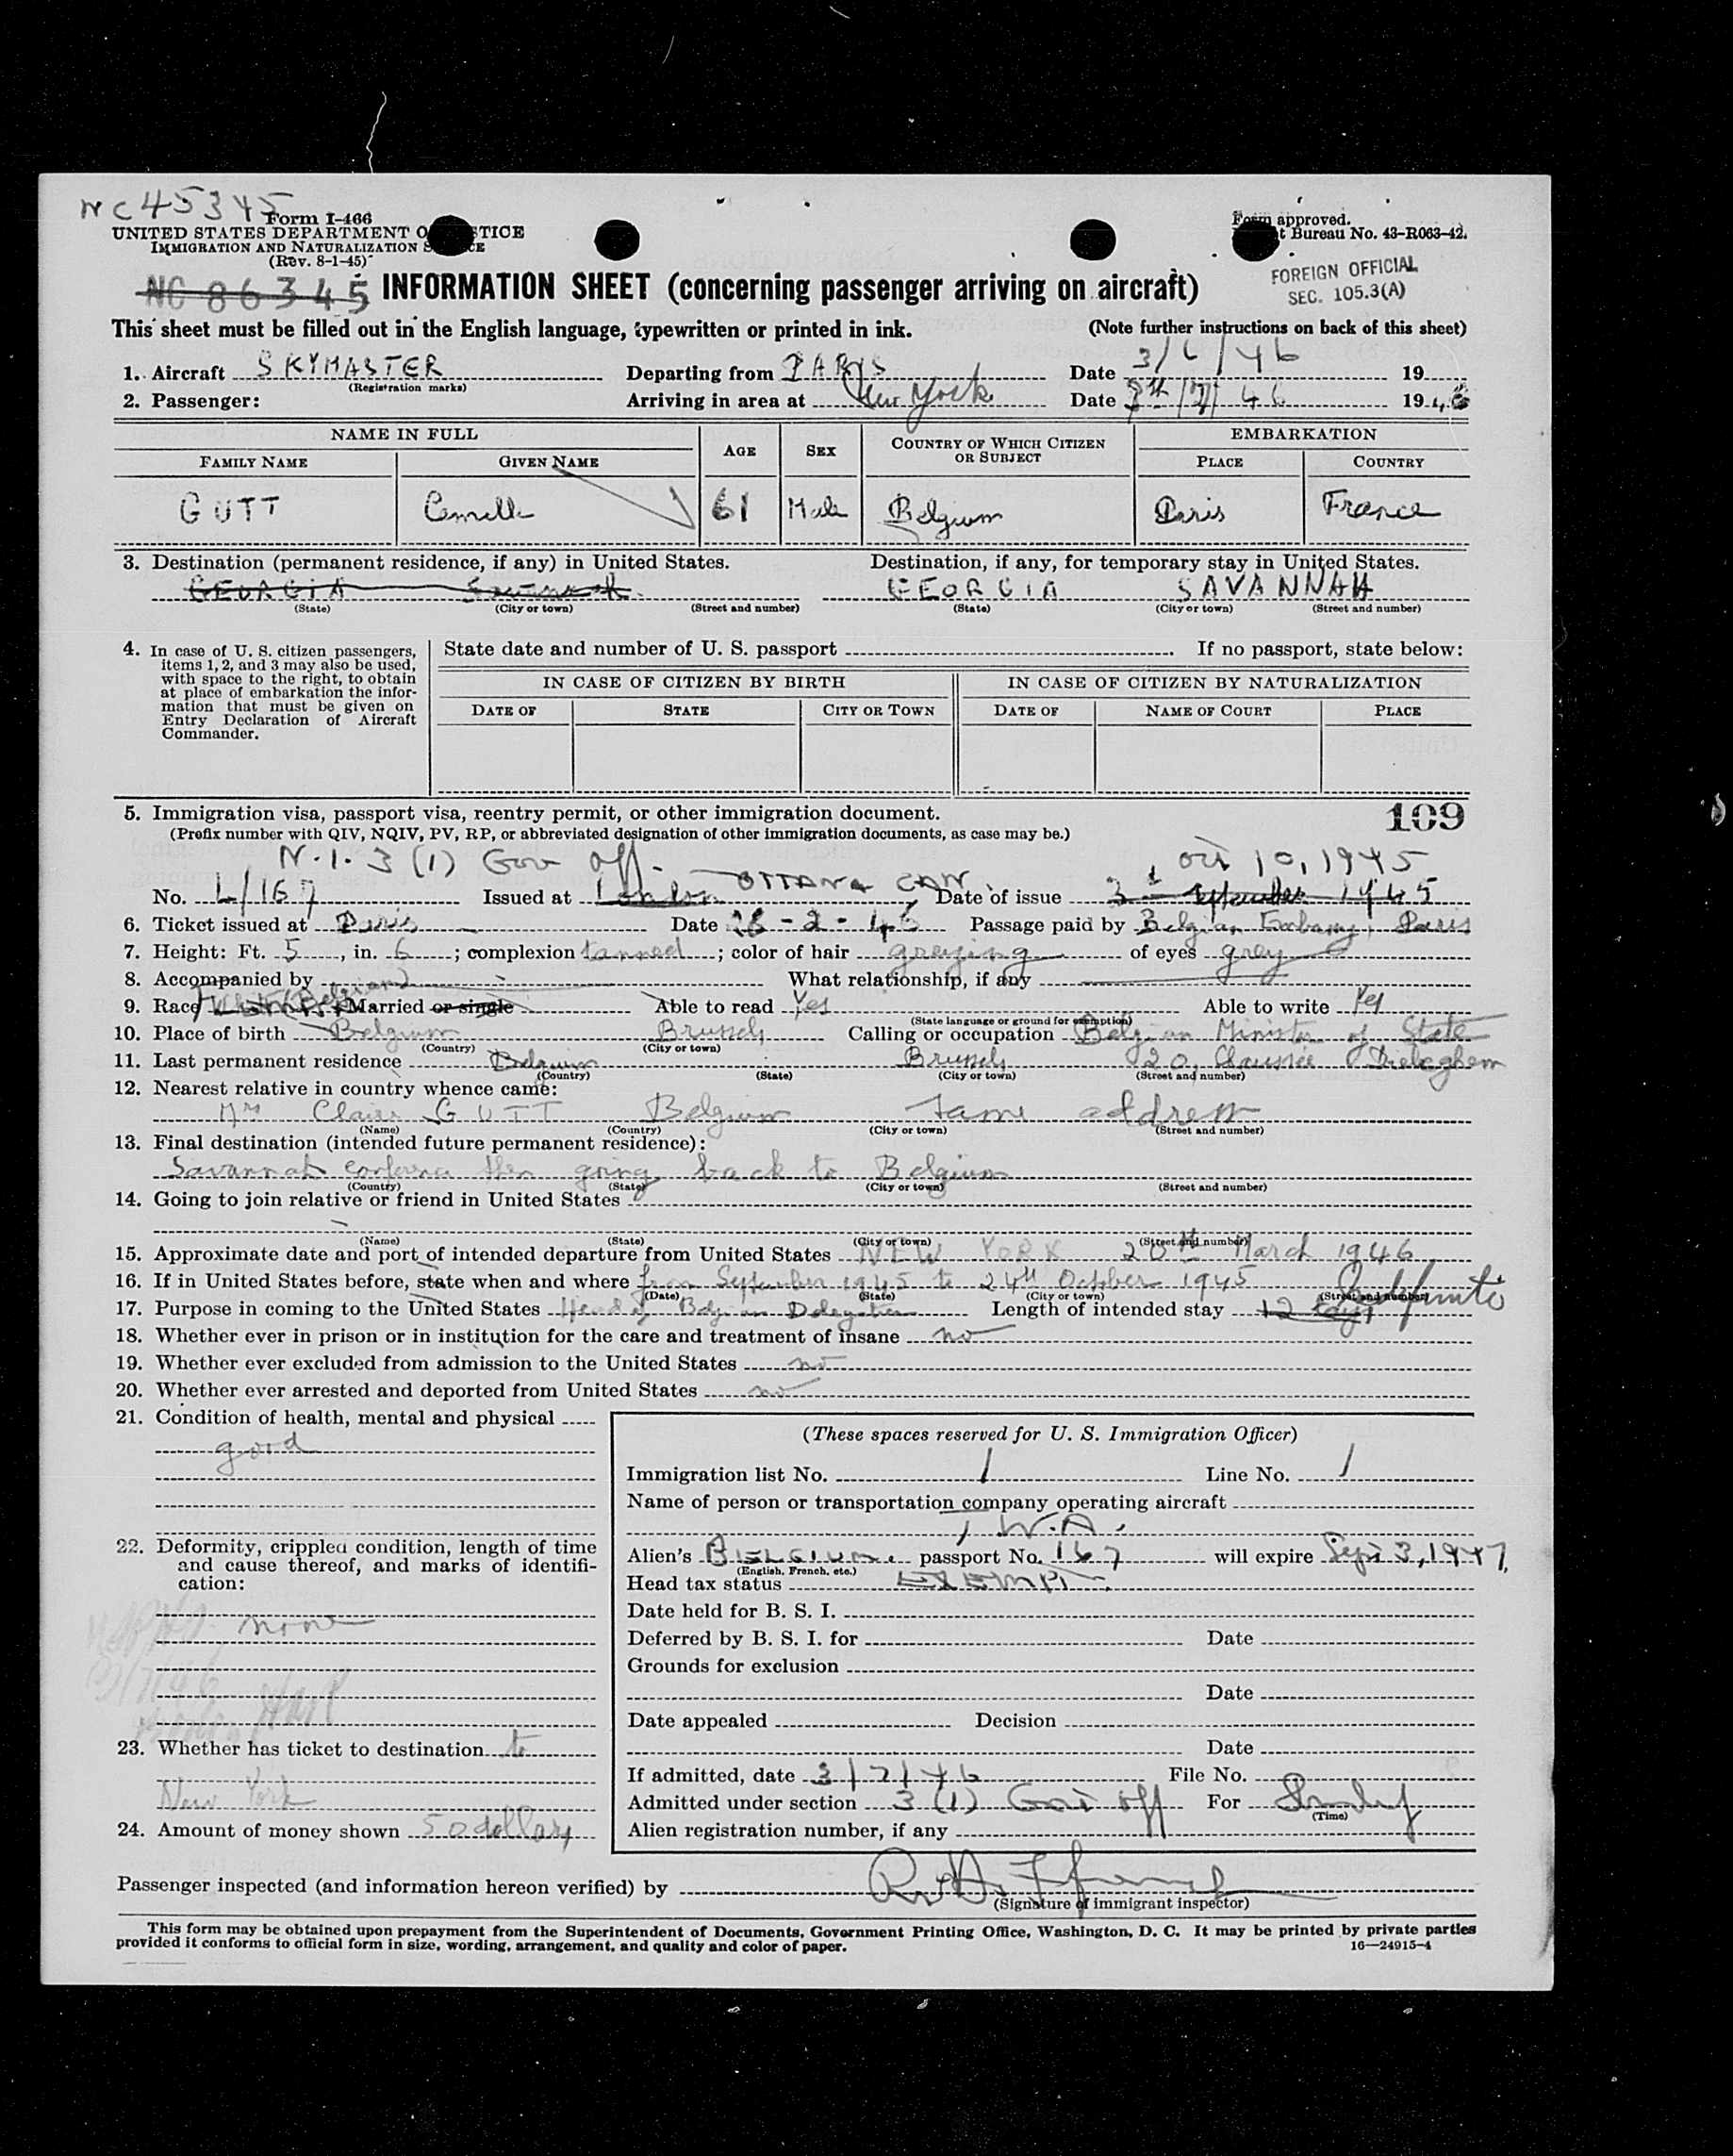 NC45345
Form I-466
UNITED STATES DEPARTMENT O STICE
IMMIGRATION AND NATURALIZATION S CE
(Rev. 8-1-45)
Form approved.
t Bureau No. 43-R063-42.
FOREIGN OFFICIAL
SEC. 105.3(A)
NC 86345 INFORMATION SHEET (concerning passenger arriving on aircraft)
This sheet must be filled out in the English language, typewritten or printed in ink. (Note further instructions on back of this sheet)
1. Aircraft SKYMASTER Departing from PARIS Date 3/6/46 19
(Registration marks)
2. Passenger: Arriving in area at New York Date 7/46 1946
NAME IN FULL AGE SEX COUNTRY OF WHICH CITIZEN OR SUBJECT EMBARKATION
FAMILY NAME GIVEN NAME PLACE COUNTRY
GUTT Camille 61 Male Belgium Paris France
3. Destination (permanent residence, if any) in United States. Destination, if any, for temporary stay in United States.
GEORGIA Savannah GEORGIA SAVANNAH
(State) (City or town) (Street and number) (State) (City or town) (Street and number)
4. In case of U. S. citizen passengers,
items 1, 2, and 3 may also be used,
with space to the right, to obtain
at place of embarkation the infor-
mation that must be given on
Entry Declaration of Aircraft
Commander.
State date and number of U. S. passport If no passport, state below:
IN CASE OF CITIZEN BY BIRTH IN CASE OF CITIZEN BY NATURALIZATION
DATE OF STATE CITY OR TOWN DATE OF NAME OF COURT PLACE
5. Immigration visa, passport visa, reentry permit, or other immigration document. 109
(Prefix number with QIV, NQIV, PV, RP, or abbreviated designation of other immigration documents, as case may be.)
N.I. 3 (1) Gov off. OTTAWA CAN. Oct 10, 1945
No. L/167 Issued at London Date of issue 3 September 1945
6. Ticket issued at Paris Date 26-2-46 Passage paid by Belgian Embassy, Paris
7. Height: Ft. 5, in. 6; complexion tanned; color of hair greying of eyes grey
8. Accompanied by What relationship, if any
9. Race Belgian Married or single Able to read Yes Able to write Yes
(State language or ground for exemption)
10. Place of birth Belgium Brussels Calling or occupation Belgian Minister of State
(Country) (City or town)
11. Last permanent residence Belgium Brussels 20, Chaussée
(Country) (State) (City or town) (Street and number)
12. Nearest relative in country whence came:
Mrs Claire GUTT Belgium same address
(Name) (Country) (City or town) (Street and number)
13. Final destination (intended future permanent residence):
Savannah conference then going back to Belgium
(Country) (State) (City or town) (Street and number)
14. Going to join relative or friend in United States
(Name) (State) (City or town) (Street and number)
15. Approximate date and port of intended departure from United States NEW YORK 20th March 1946
16. If in United States before, state when and where from September 1945 to 24th October 1945
(Date) (State) (City or town) (Street and number)
17. Purpose in coming to the United States Head of Belgian Delegation Length of intended stay 12 days Indefinite
18. Whether ever in prison or in institution for the care and treatment of insane no
19. Whether ever excluded from admission to the United States no
20. Whether ever arrested and deported from United States no
21. Condition of health, mental and physical
good
22. Deformity, crippled condition, length of time
and cause thereof, and marks of identifi-
cation:
none
23. Whether has ticket to destination to
New York
24. Amount of money shown 50 dollars
(These spaces reserved for U. S. Immigration Officer)
Immigration list No. 1 Line No. 1
Name of person or transportation company operating aircraft
T.W.A.
Alien's BELGIUM passport No. 167 will expire Sept 3, 1947,
(English, French, etc.)
Head tax status EXEMPT
Date held for B. S. I.
Deferred by B. S. I. for Date
Grounds for exclusion
Date
Date appealed Decision
Date
If admitted, date 3/7/46 File No.
Admitted under section 3 (1) Gov off For
(Time)
Alien registration number, if any
Passenger inspected (and information hereon verified) by
(Signature of immigrant inspector)
This form may be obtained upon prepayment from the Superintendent of Documents, Government Printing Office, Washington, D. C. It may be printed by private parties
provided it conforms to official form in size, wording, arrangement, and quality and color of paper. 16—24915-4